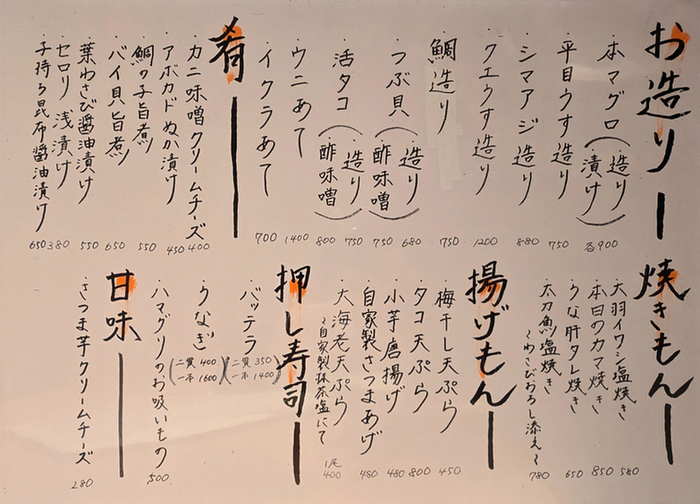 お造り
・本マグロ(造り・漬け) 各900
・平目うす造り 750
・シマアジ造り 880
・クエうす造り 1200
・鯛造り 750
・つぶ貝(・造り 680 ・酢味噌 750)
・活タコ(・造り 750 ・酢味噌 800)
・ウニあて 1400
・イクラあて 700
肴
・カニ味噌クリームチーズ 400
・アボカドぬか漬け 450
・鯛の子旨煮 550
・バイ貝旨煮 650
・葉わさび醤油漬け 550
・セロリ浅漬け 380
・子持ち昆布醤油漬け 650
焼きもん
・大羽イワシ塩焼き 580
・本日のカマ焼き 850
・うな肝タレ焼き 650
・太刀魚塩焼き 780
〜わさびおろし添え〜
揚げもん
・梅干し天ぷら 450
・タコ天ぷら 800
・小芋唐揚げ 480
・自家製さつまあげ 480
・大海老天ぷら 1尾400
〜自家製抹茶塩にて
押し寿司
・バッテラ(二貫350 一本1400)
・うなぎ(二貫400 一本1600)
・ハマグリのお吸いもの 500
甘味
・さつま芋クリームチーズ 280